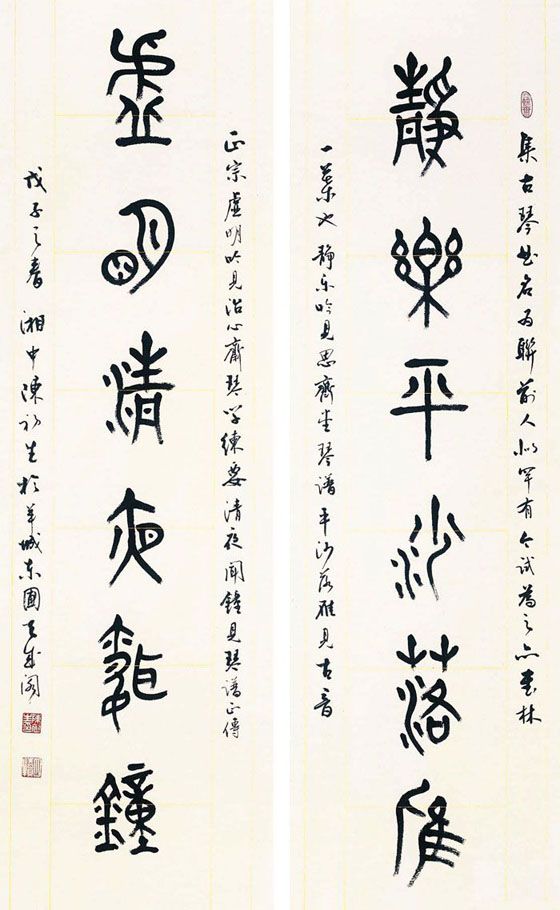 集古琴曲名為聯前人似罕有今試為之亦藝林
靜樂平沙落雁
一葉也靜樂吟見思齊堂琴譜平沙落雁見古音
正宗虛明吟見治心齋琴學練要清夜聞鐘見琴譜正傳
虛明清夜聞鐘
戊子之春湘中陳初生於羊城東圃天成閣